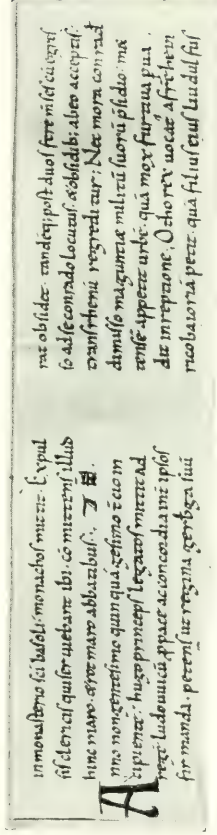 in monasterio sci basoli. monachos mittit. Expul
sis clericis qui seruiebant ibi. cōmittens illud
hincmaro. abbatibus:,
Anno nongentesimo quinquagesimo tcio in
cipiente. hugo princeps legatos mittit ad
regē ludouuicū ꝓ pace ac concordia int ipsos
firmanda. petens ut regina gerbga suū
rat obsidet. tandēq; post duos fere mses cū egres
so ad se conrado locutus. & obsidib; ab eo acceptis.
transrhenū regreditur; Nec mora conrad
dimisso maguntiae militū suorū psidio. mae
tensē appetit urbē. quā mox furtiua pua
dit inreptione, Otho rex uocat a
rico baioariā petit. quā filius eius liudulfus